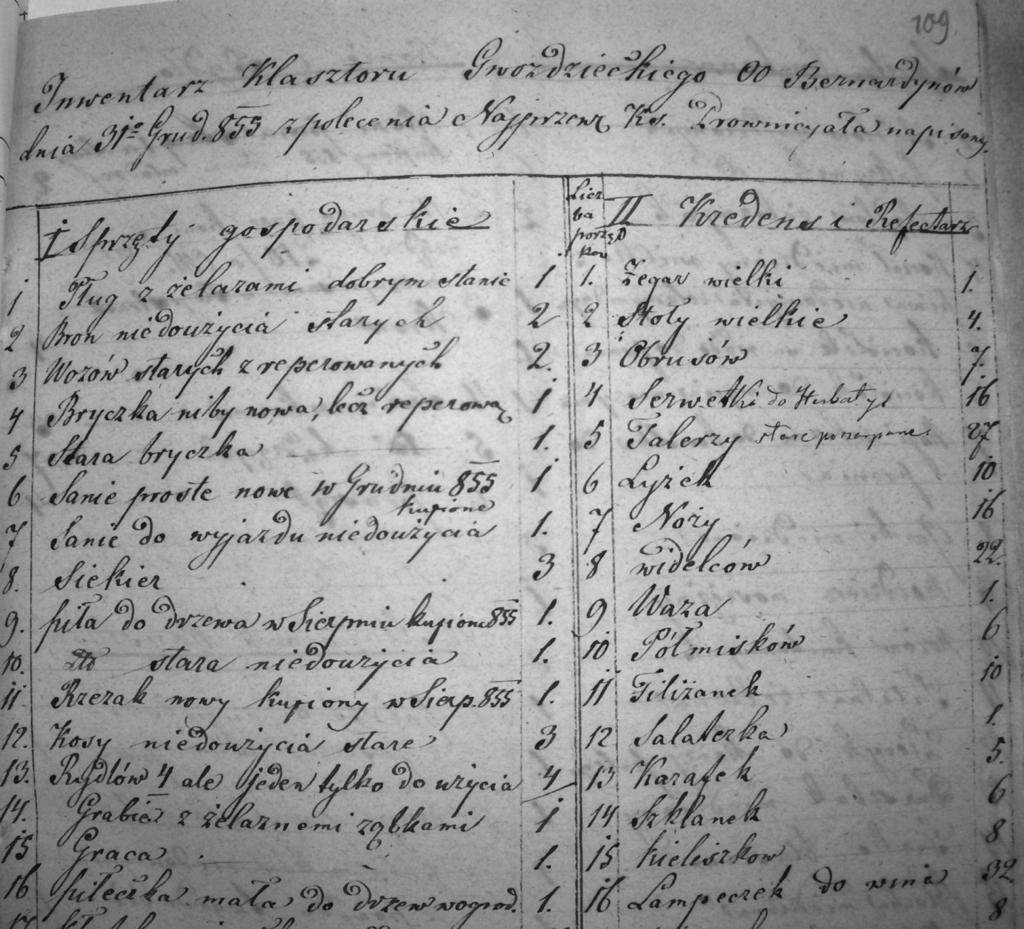 109
Inwentarz Klasztoru Gwoździeckiego OO Bernardynów
dnia 31go Grud. 855 z polecenia Najprzew. Ks. Prowincyała napisany.
I Sprzęty gospodarskie
1 Pług z żelazami dobrym stanie 1
2 Bron niedoużycia starych 2
3 Wozów starych zreperowanych 2.
4 Bryczka niby nowa, lecz reperową 1
5 Stara bryczka 1.
6 Sanie proste nowe w Grudniu 855 1
kupione
7 Sanie do wyjazdu niedoużycia 1.
8. Siekier 3
9. piła do drzewa w Sierpniu kupiona 855 1.
10. stara niedoużycia 1.
11 Rzezak nowy kupiony w Sierp. 855 1.
12. Kosy niedoużycia stare 3
13. Rydlów 4 ale jeden tylko do użycia 4
14. Grabie z żelaznemi ząbkami 1
15 Graca 1.
16 piłeczka mała do drzew w ogrod. 1.
Licz
ba
porzą
kow
II Kredens i Refectarz
1. Zegar wielki 1.
2 Stoły wielkie 4.
3 Obrusów 7.
4 Serwetki do Herbaty 16
5 Talerzy stare 27
6 Łyżek 10
7 Noży 16
8 widelców 22.
9 Waza 1.
10 Półmisków 6
11 Filiżanek 10
12 Salaterka 1.
13 Karafek 5.
14 Szklanek 6
15 kieliszkow 8
16 Lampeczek do wina 32
8